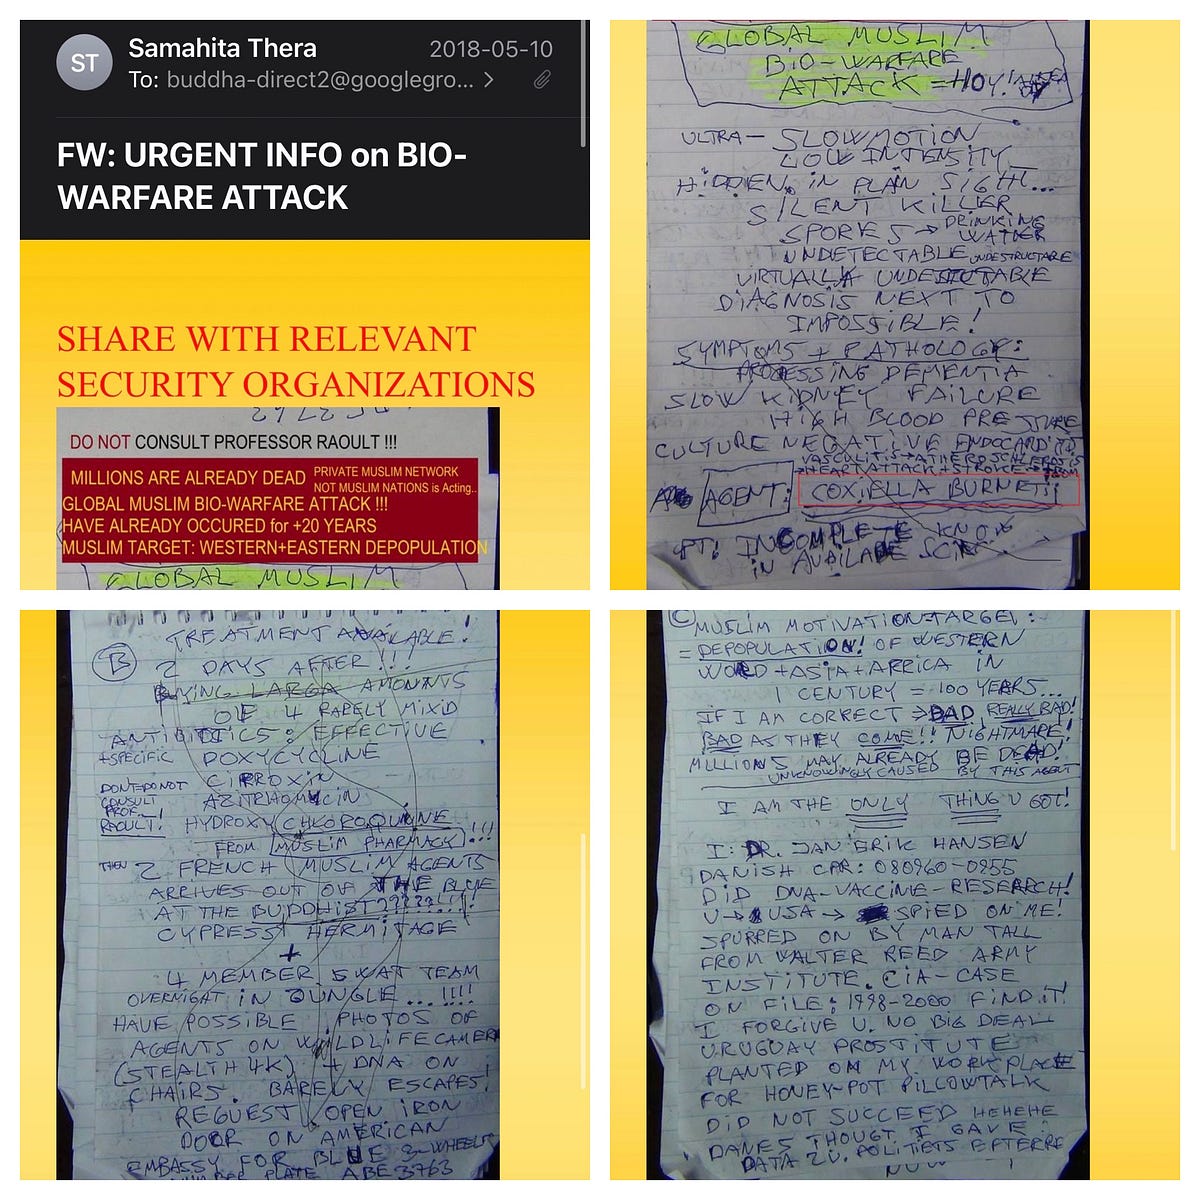 ST
Samahita Thera
2018-05-10
To: buddha-direct2@googlegro...
FW: URGENT INFO on BIO-
WARFARE ATTACK
SHARE WITH RELEVANT
SECURITY ORGANIZATIONS
DO NOT CONSULT PROFESSOR RAOULT !!!
MILLIONS ARE ALREADY DEAD
PRIVATE MUSLIM NETWORK
NOT MUSLIM NATIONS is Acting..
GLOBAL MUSLIM BIO-WARFARE ATTACK !!!
HAVE ALREADY OCCURED for +20 YEARS
MUSLIM TARGET: WESTERN+EASTERN DEPOPULATION
GLOBAL MUSLIM
GLOBAL MUSLIM
BIO-WARFARE
ATTACK =
ULTRA- SLOWMOTION
LOW INTENSITY
HIDDEN, IN PLAN SIGHT...
SILENT KILLER
SPORES → DRINKING
WATER
UNDETECTABLE UNDESTRUCTABLE
VIRTUALLY
DIAGNOSIS NEXT TO
IMPOSSIBLE!
SYMPTOMS + PATHOLOGY:
DEMENTIA
SLOW KIDNEY FAILURE
HIGH BLOOD PRESSURE
CULTURE NEGATIVE
VASCULITIS → ATHEROSCLEROSIS
AGENT: COXIELLA BURNETII
PT: INCOMPLETE KNOW
IN
B
TREATMENT AVAILABLE!
2 DAYS AFTER!!!
BUYING LARGA AMOUNTS
OF 4 RARELY MIXID
ANTIBIOTICS: EFFECTIVE
+SPECIFIC DOXYCYCLINE
CIPROXIN
CONSULT
PROF.
RAOULT!
HYDROXYCHLOROQUINE
FROM MUSLIM PHARMACY!!!
THEN 2 FRENCH MUSLIM AGENTS
ARRIVES OUT OF THE BLUE
AT THE BUDDHIST
CYPRESS HERMITAGE
+
4 MEMBER SWAT TEAM
OVERNIGHT IN JUNGLE...!!!!
HAVE POSSIBLE PHOTOS OF
AGENTS ON WILDLIFECAMERA
(STEALTH 4K) + DNA ON
CHAIRS. BARELY ESCAPES!
REGUEST OPEN IRON
DOOR ON AMERICAN
EMBASSY FOR BLUE 3-WHEELER
PLATE ABE 3763
C MUSLIM MOTIVATION+TARGET:
= DEPOPULATION! OF WESTERN
+ASIA+AFRICA IN
1 CENTURY = 100 YEARS...
IF I AM CORRECT ⇒ BAD, REALLY BAD!
BAD AS THEY COME!! NIGHTMARE!
MILLIONS MAY ALREADY BE DEAD!
UNKNOWINGLY CAUSED BY THIS AGENT
I AM THE ONLY THING U GOT!
I: DR. JAN ERIK HANSEN
DANISH CPR: 080960-0955
DID DNA-VACCINE-RESEARCH!
USA → SPIED ON ME!
SPURRED ON BY MAN TALL
FROM WALTER REED ARMY
INSTITUTE. CIA-CASE
ON FILE: 1998-2000 FIND IT!
I FORGIVE U. NO BIG DEAL
URUGUAY PROSTITUTE
PLANTED ON MY WORKPLACE
FOR HONEY-POT PILLOWTALK
DID NOT SUCCEED HEHEHE
DANES THOUGT I GAVE
DATA 2 U. POLITIETS EFTERRE
NOW